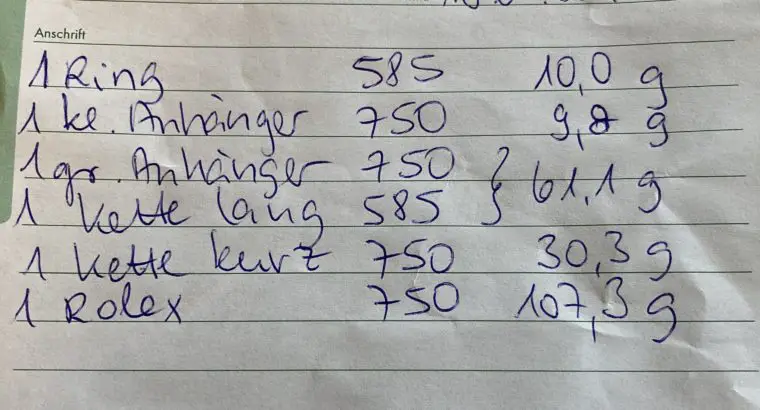 Anschrift
1 Ring 585 10,0 g
1 kl. Anhänger 750 9,8 g
1 gr. Anhänger 750
1 Kette lang 585 } 61,1 g
1 Kette kurz 750 30,3 g
1 Rolex 750 107,3 g